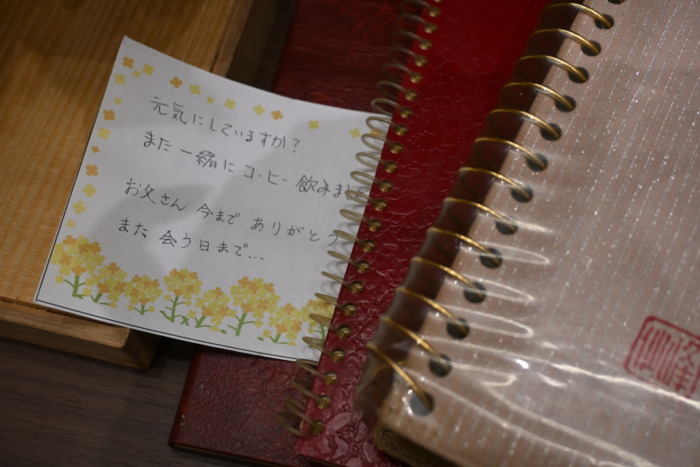 元気にしていますか?
また一緒にコーヒー飲みま
お父さん 今まで ありがとう
また 会う日まで...